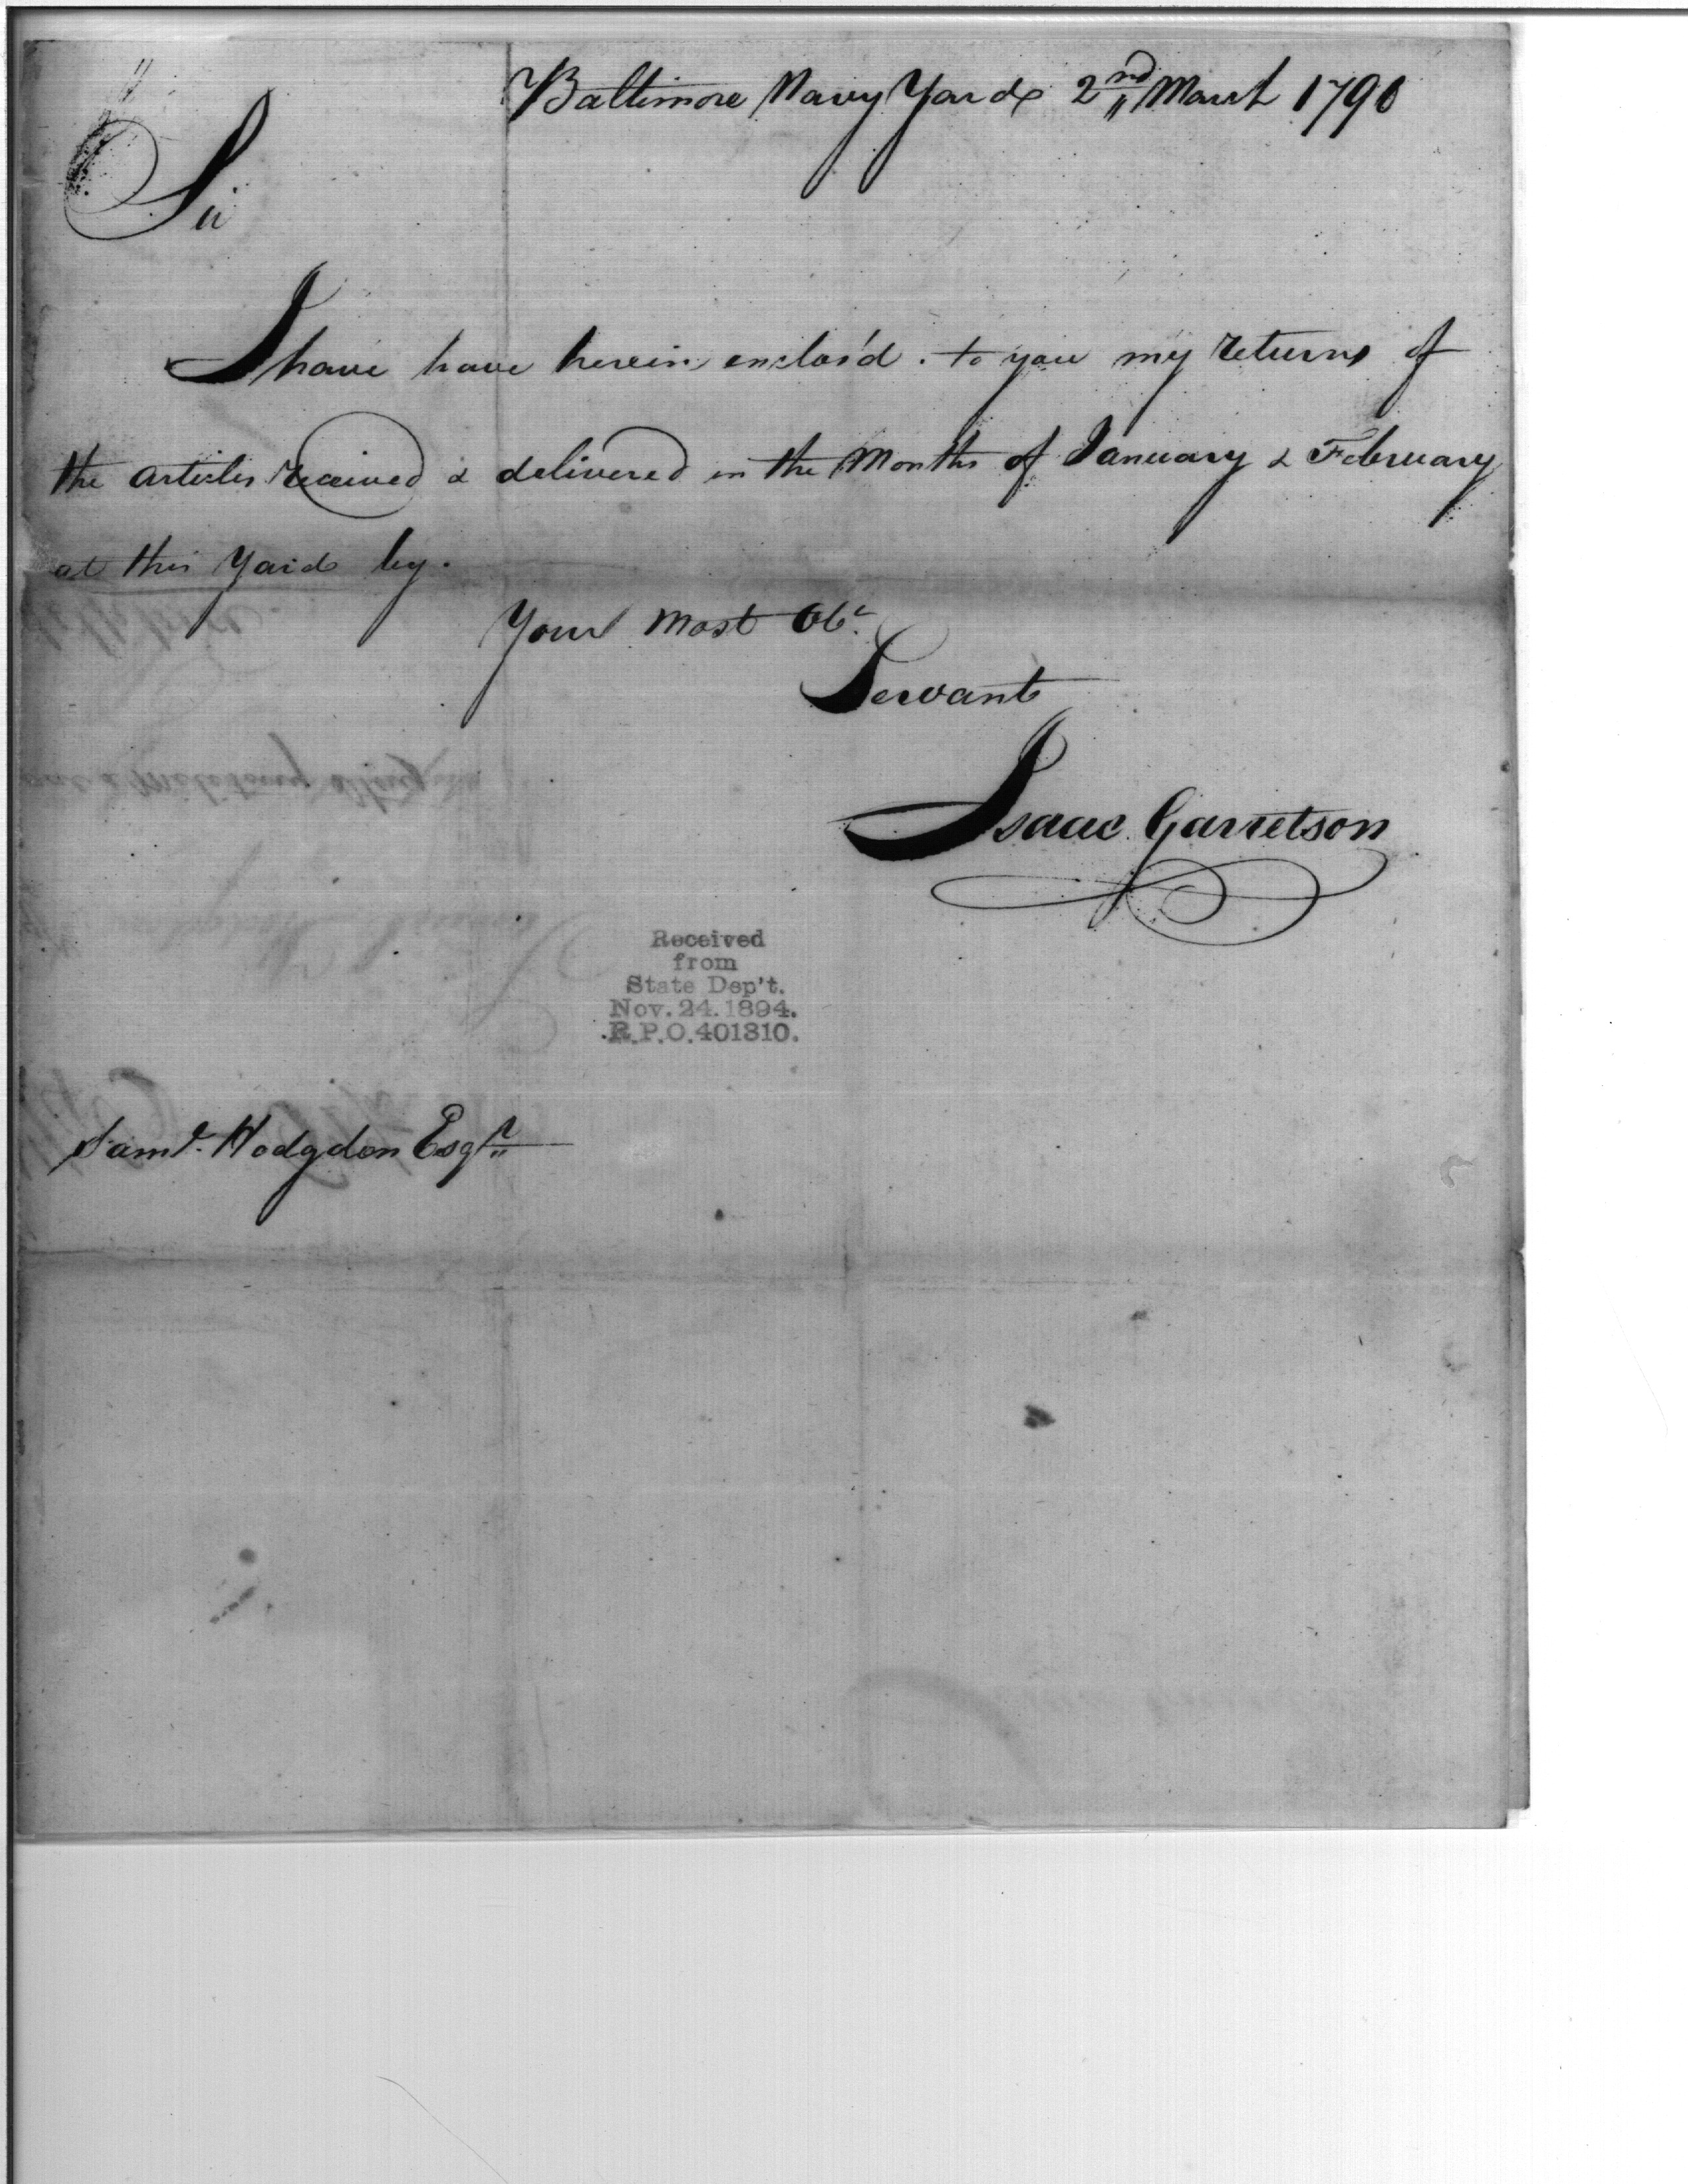 Baltimore Navy Yard 2nd March 1798
Sir
I have have herein enclos'd . to you my returns of
the articles received & delivered in the Months of January & February
at this Yard by .
Your Most Obt.
Servant
Isaac Garretson
Received
from
State Dep't.
Nov. 24. 1894.
R.P.O. 401310.
Saml. Hodgdon Esqr